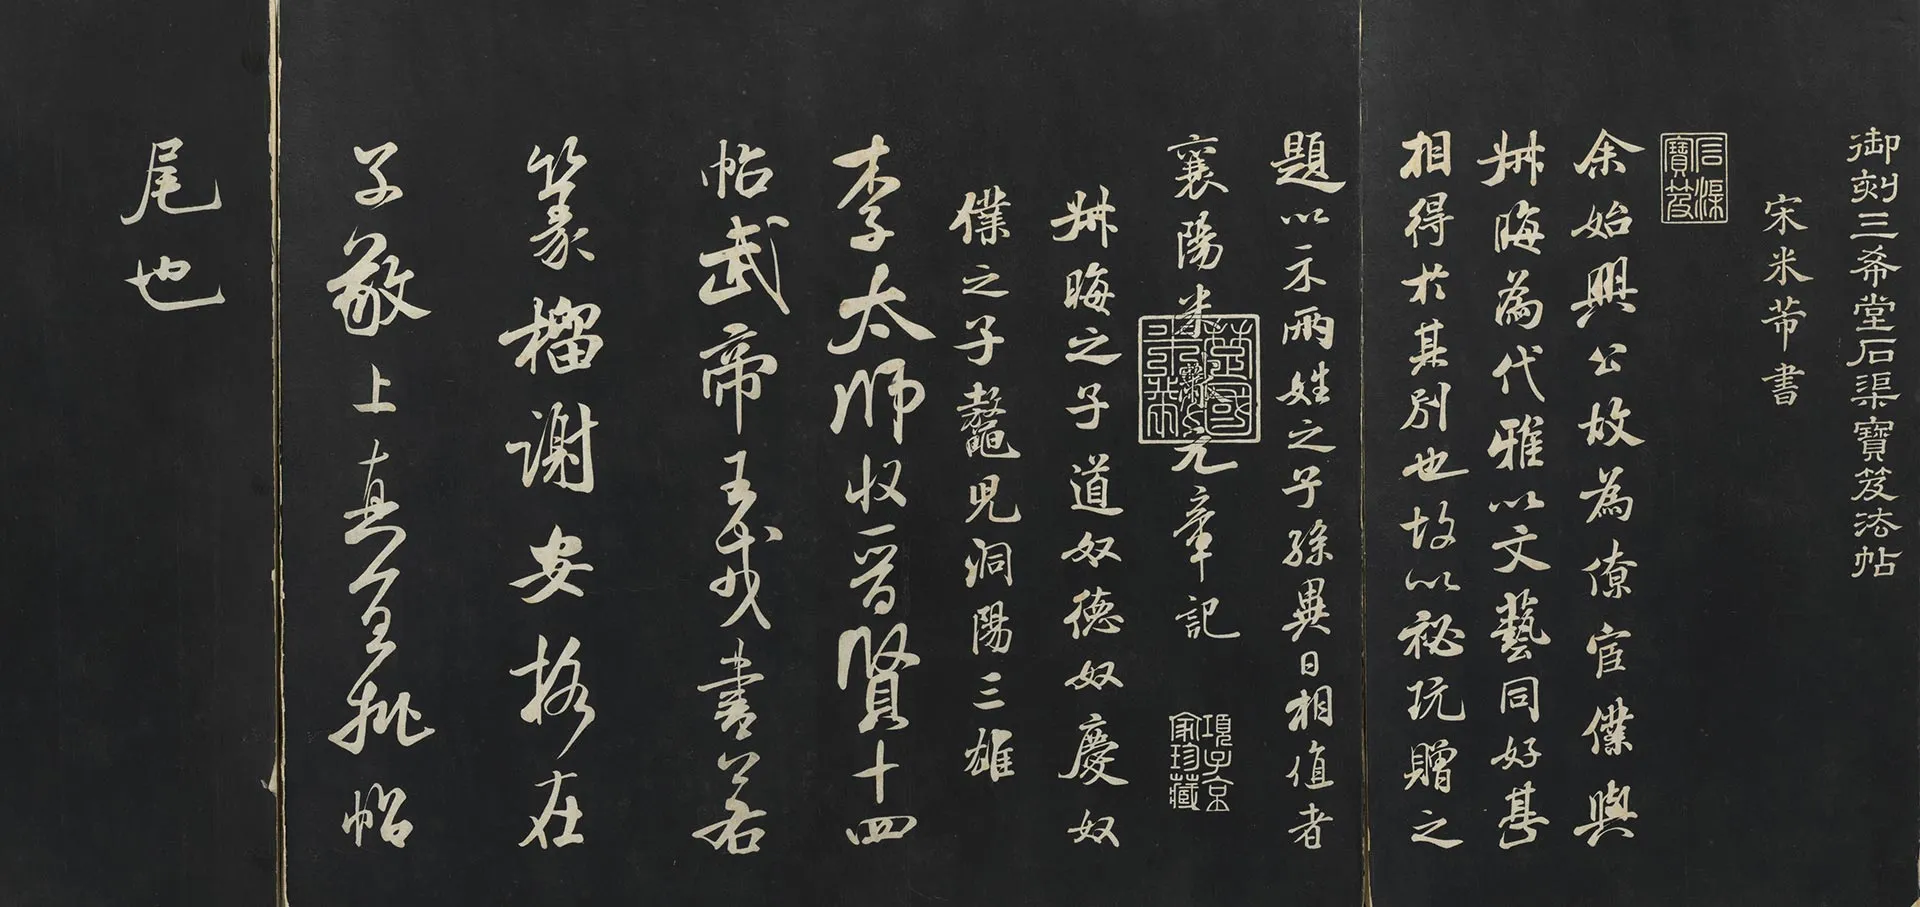 御刻三希堂石渠寶笈法帖
宋米芾書
石渠寶笈
余始興公故為僚宦僕與
叔晦為代雅以文藝同好甚
相得於其別也故以秘玩贈之
題以示兩姓之子孫異日相值者
襄陽米黻元章記
項子京家珍藏
叔晦之子道奴德奴慶奴
僕之子鼇兒洞陽三雄
李太師收晋賢十四
帖武帝王戎書若
篆籀謝安格在
子敬上真宜批帖
尾也